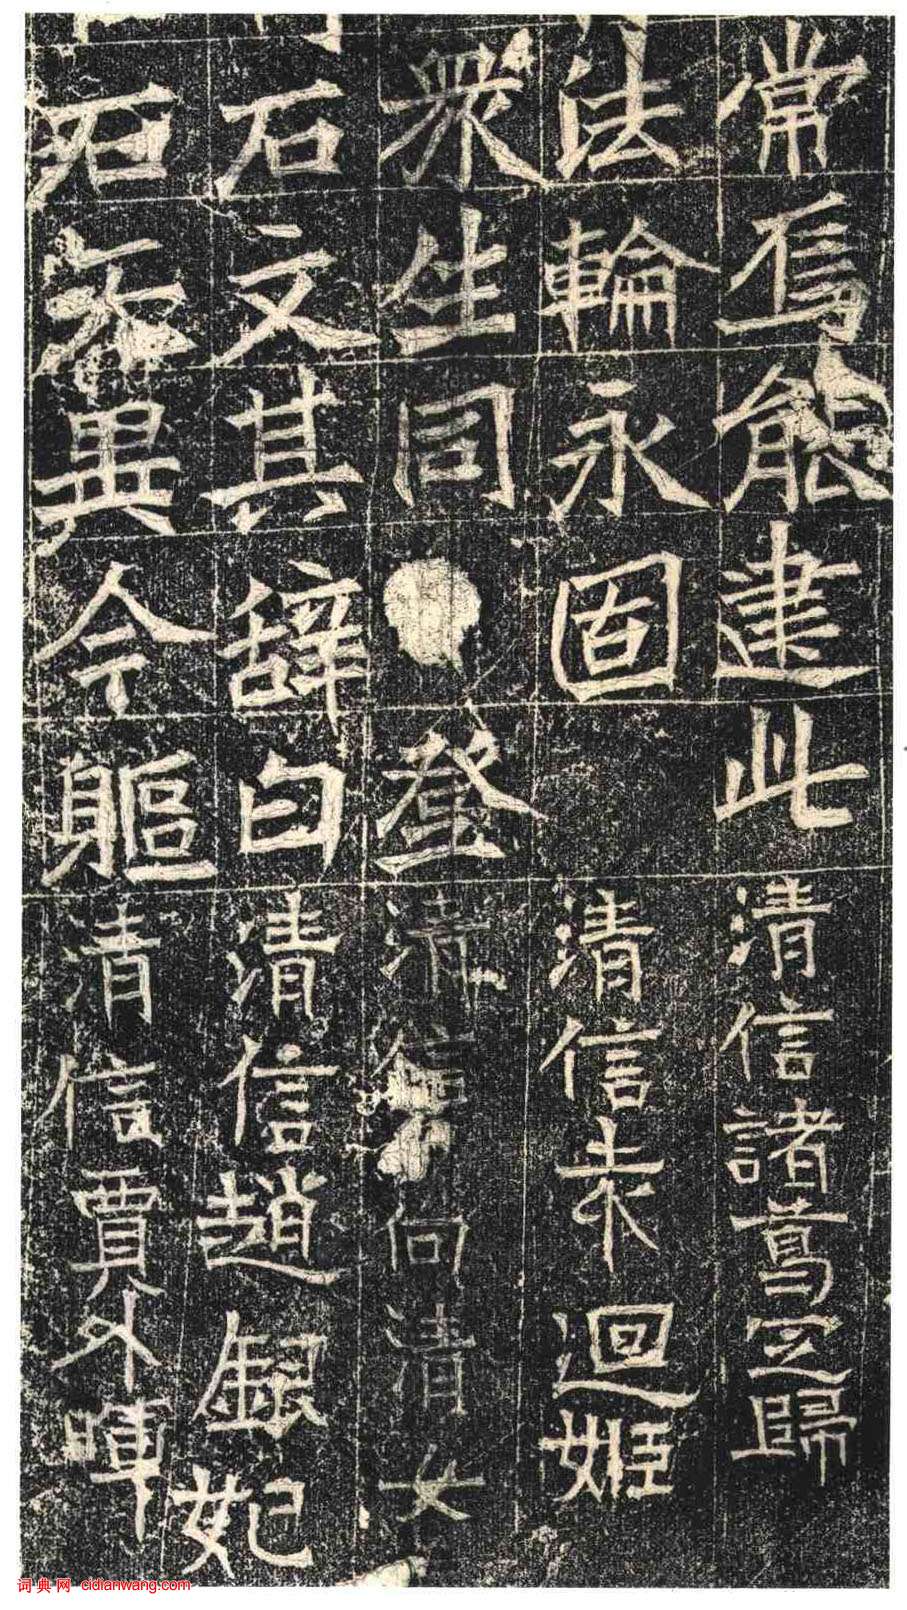 常焉能建此清信諸葛正歸
法輪永固清信朱迴姬
眾生同登清信向清女
石文其辞曰清信趙銀妃
石無異今軀清信賈外暉
词典网 cidianwang.com